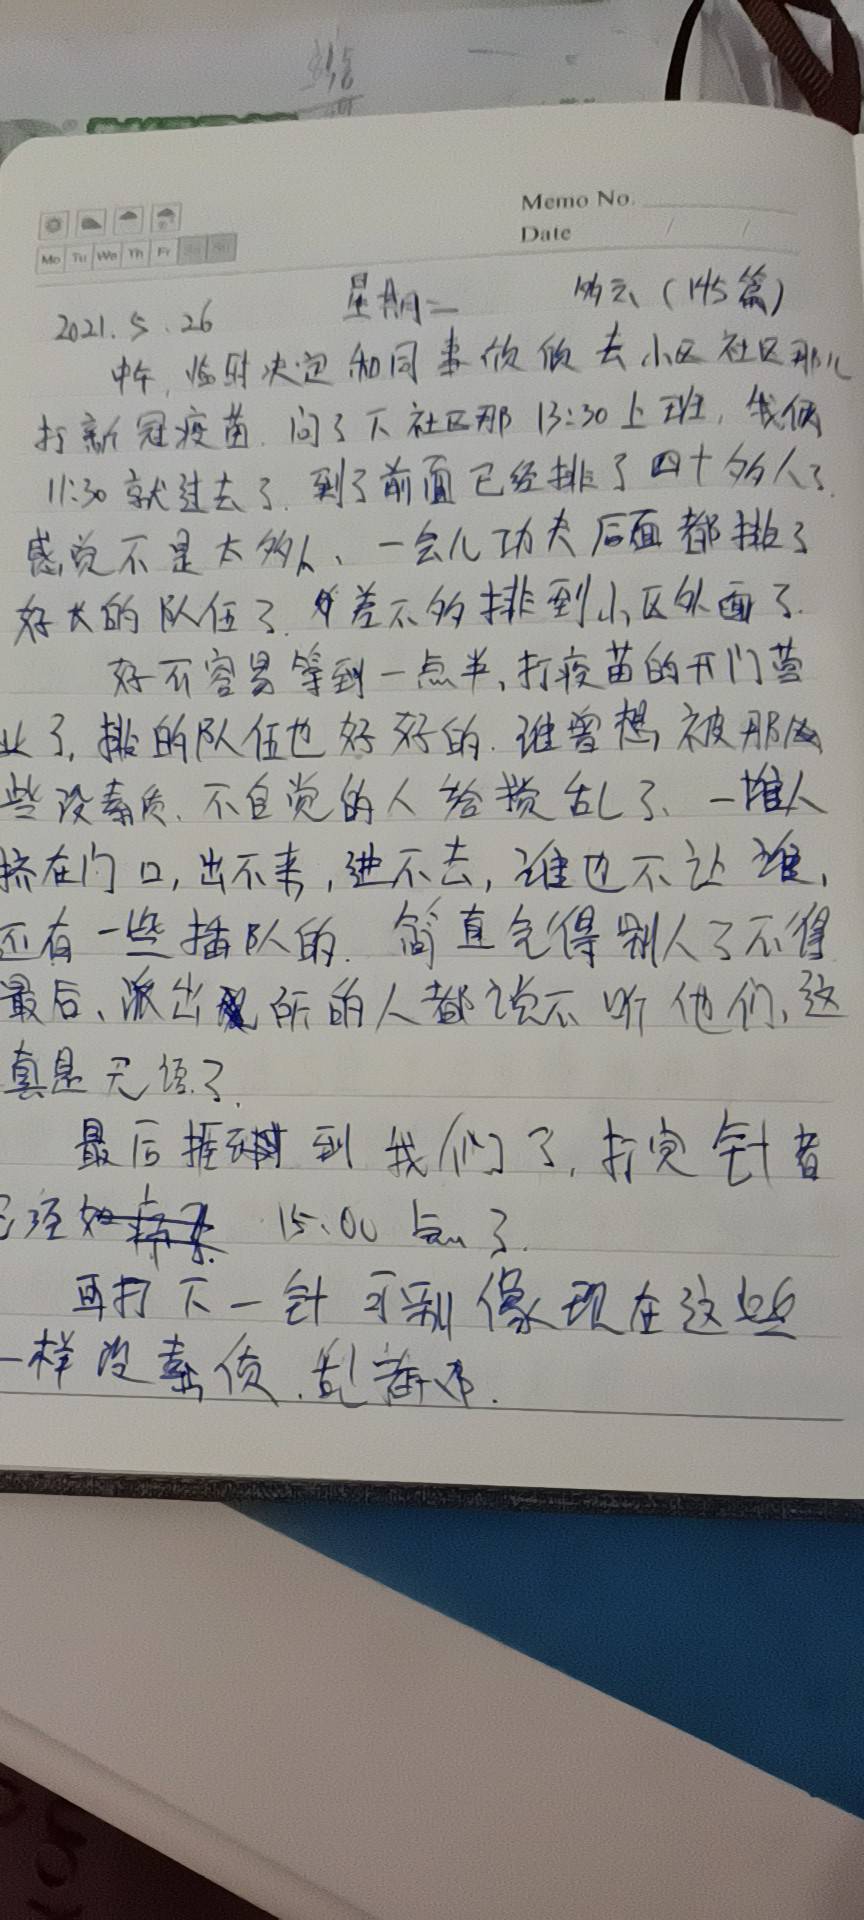 Memo No.
Date / /
Mo Tu We Th Fr Sa Su
2021.5.26 星期二 多云(145篇)
中午,临时决定和同事欣欣去小区社区那儿
打新冠疫苗.问了下社区那13:30上班,我俩
11:30就过去了.到了前面已经排了四十多人了.
感觉不是太多人、一会儿功夫后面都排了
好长的队伍了.差不多排到小区外面了.
好不容易等到一点半,打疫苗的开门营
业了,排的队伍也好好的.谁曾想,被那
些没素质、不自觉的人给搅乱了、一堆人
挤在门口,出不来,进不去,谁也不让谁,
还有一些插队的.简直气得别人了不得
最后、派出所的人都说不听他们,这
真是无语了.
最后排到我们了,打完针者
已经 15:00点了.
再打下一针可别像现在这些
一样没素质.乱